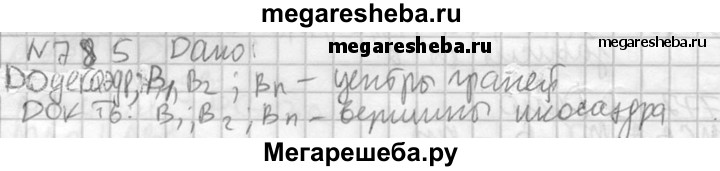 megaresheba.ru
N785 Дано:
megaresheba.ru
megaresheba.ru
Додекаэдр; B1, B2; Bn – центры граней
Док ть: B1; B2; Bn – вершины икосаэдра
Мегарешеба.ру